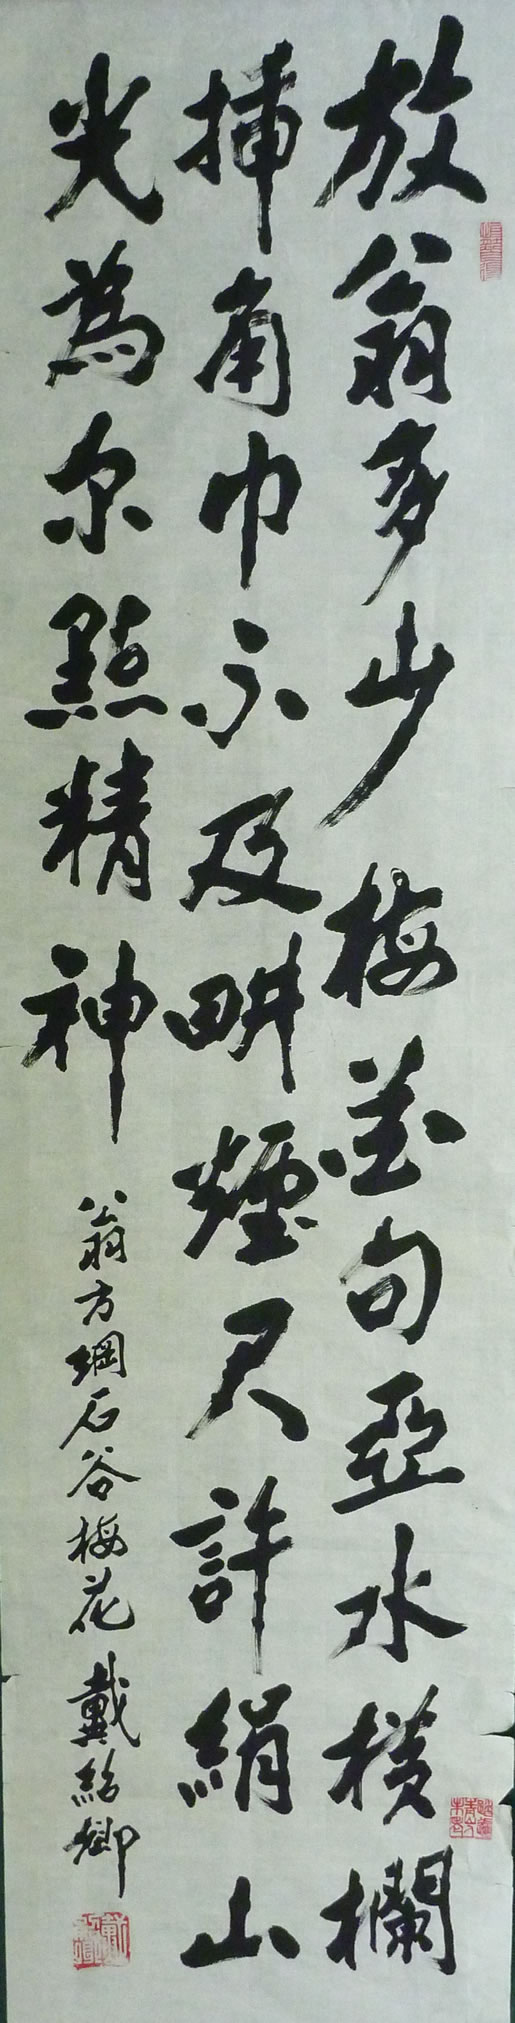 放翁多少梅花句亞水橫欄
插角巾不及畊煙尺許絹山
光為尔點精神
翁方綱石谷梅花 戴